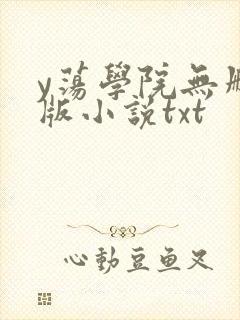 y蕩學院無刪
版小說txt
心動豆魚又